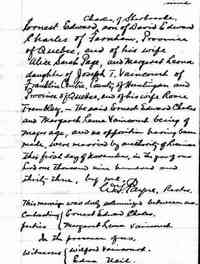 Charles of Sherbrooke
Ernest Edward, son of David Edward
Charles of Farnham, Province
of Quebec, and of his wife
Alice Sarah Page, and Margaret Leona
daughter of Joseph T. Vaincourt of
Franklin Centre, County of Huntingdon and
Province of Quebec, and of his wife Rose
Trembley, - The said Ernest Edward Charles
and Margaret Leona Vaincourt being of
proper age, and no opposition having been
made, were married by authority of License
This first day of November, in the year of our
Lord one thousand nine hundred and
thirty-three, by me,
Payne, Pastor.
This marriage was duly solemnized between us.
Contracting Ernest Edward Charles
parties Margaret Leona Vaincourt
In the presence of us,
Witnesses Wilfred Vaincourt.
Edna Hail.